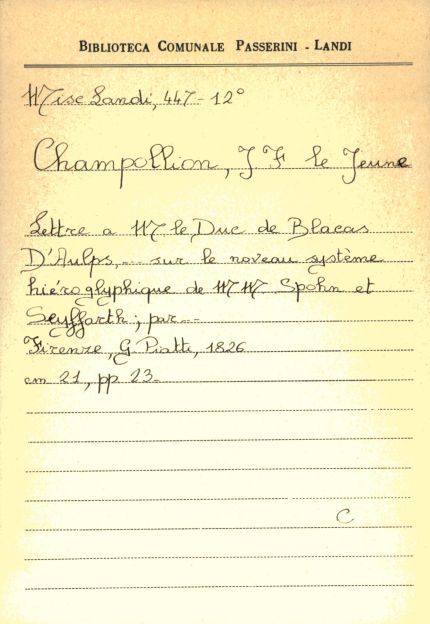 BIBLIOTECA COMUNALE PASSERINI - LANDI
Misc Landi, 447-12°
Champollion, J F le Jeune
Lettre a M le Duc de Blacas
D'Aulps,... sur le noveau système
hiéroglyphique de M M Spohn et
Seyffarth; par...
Firenze, G. Piatti, 1826
cm 21, pp 23.
C